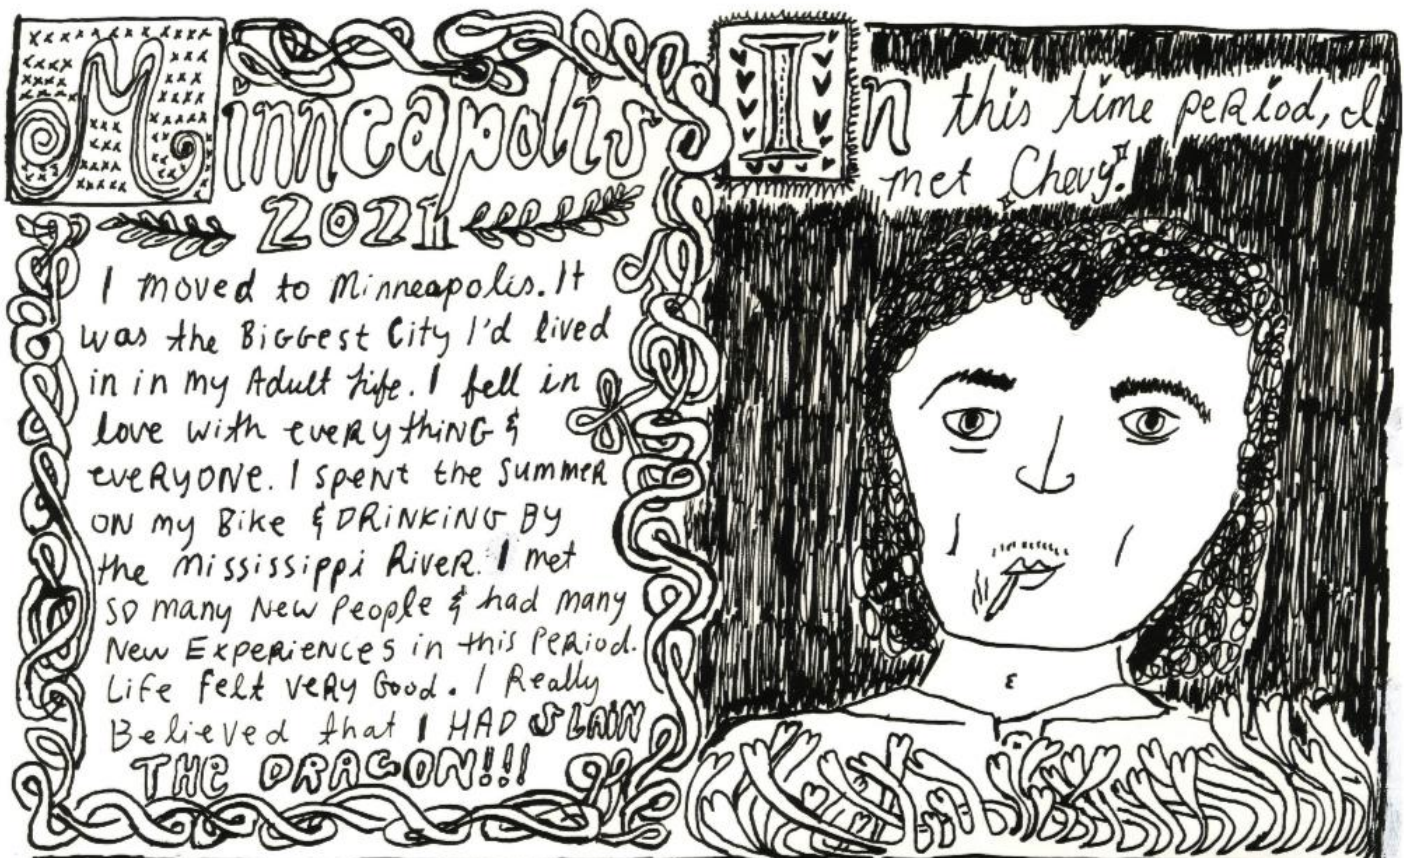 Minneapolis
2021
I moved to Minneapolis. It
was the Biggest City I'd lived
in in my Adult Life. I fell in
love with everything &
everyone. I spent the summer
on my Bike & DRINKING By
the Mississippi River. I met
so many New People & had many
New Experiences in this Period.
Life felt very Good. I Really
Believed that I HAD SLAIN
THE DRAGON!!!
In this time period, I
met Chevy.